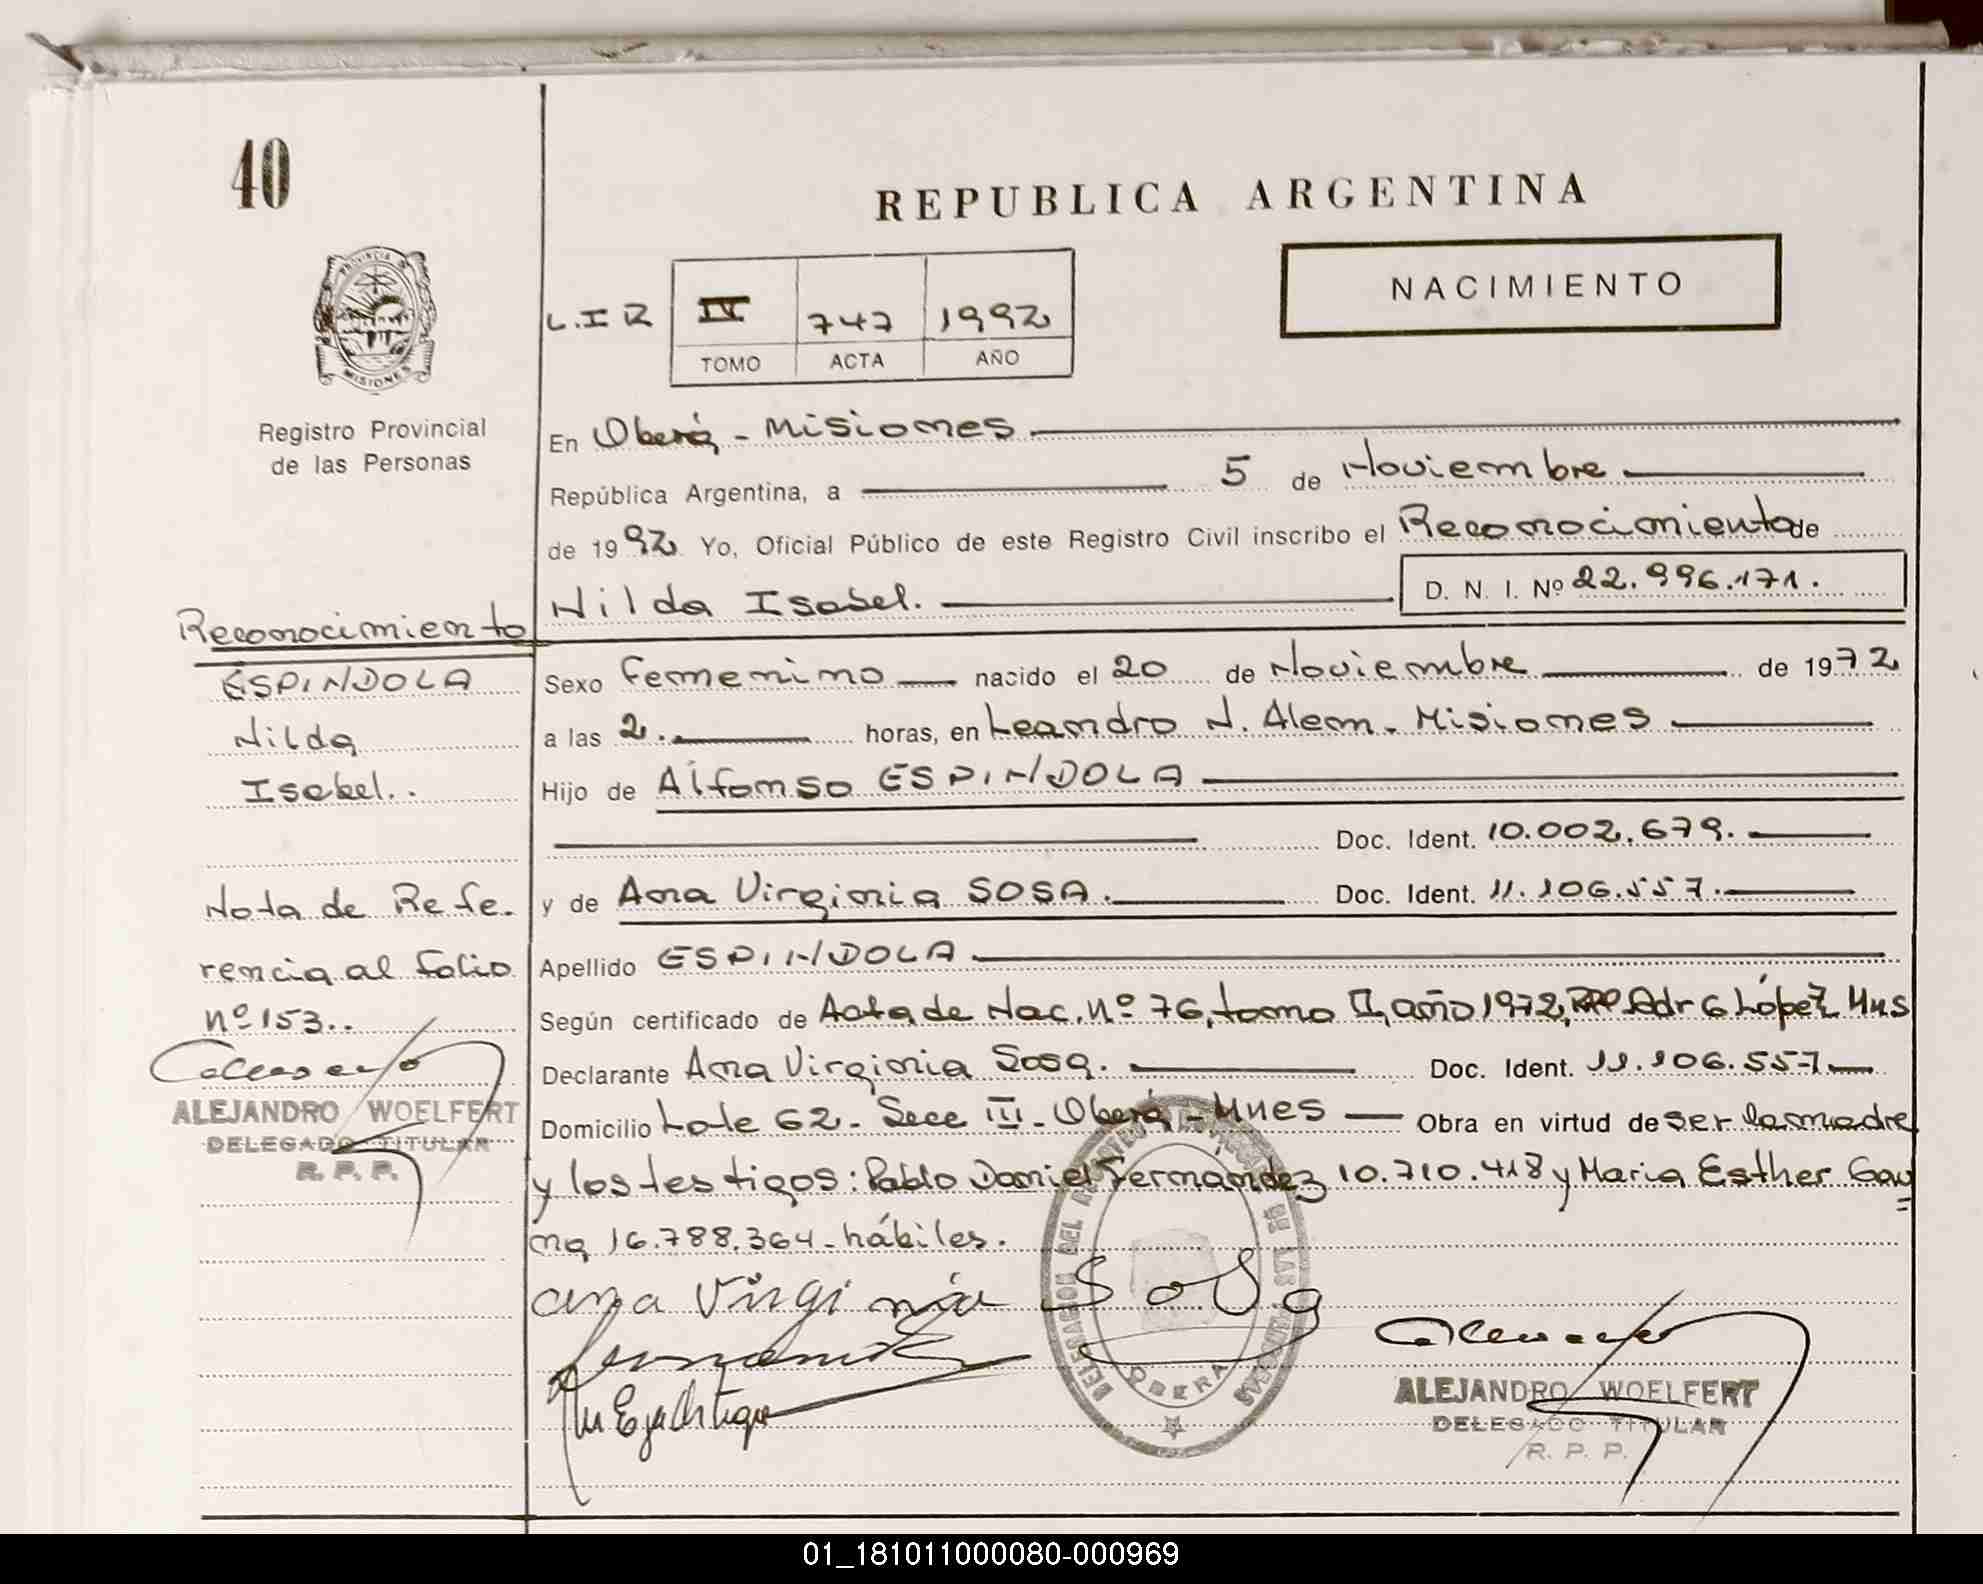 40
REPUBLICA ARGENTINA
PROVINCIA DE
MISIONES
Registro Provincial
de las Personas
L.I R
IV 747 1992
TOMO ACTA AÑO
NACIMIENTO
En Oberá - Misiones
República Argentina, a 5 de Noviembre
de 1992 Yo, Oficial Público de este Registro Civil inscribo el Reconocimiento de
Nilda Isabel. D. N. I. Nº 22.996.171.
Reconocimiento
ESPINDOLA
Nilda
Isabel..
Nota de Refe.
rencia al folio
nº 153..
ALEJANDRO WOELFERT
DELEGADO TITULAR
R. P. P.
Sexo Femenino nacido el 20 de Noviembre de 1972
a las 2. horas, en Leandro N. Alem. Misiones
Hijo de Alfonso ESPINDOLA
Doc. Ident. 10.002.679.
y de Ana Virginia SOSA. Doc. Ident. 11.106.557.
Apellido ESPINDOLA
Según certificado de Acta de Nac. nº 76, tomo II, año 1972, RPP Gdr G López Mns
Declarante Ana Virginia Sosa. Doc. Ident. 11.106.557.
Domicilio Lote 62 - Secc III - Oberá - Mnes Obra en virtud de ser la madre
y los testigos: Pablo Daniel Fernández 10.710.418 y Maria Esther Gau
na 16.788.364 - hábiles.
ana Virginia Sosa
DELEGACION DEL REGISTRO PROVINCIAL DE LAS PERSONAS
OBERA
ALEJANDRO WOELFERT
DELEGADO TITULAR
R. P. P.
01_181011000080-000969